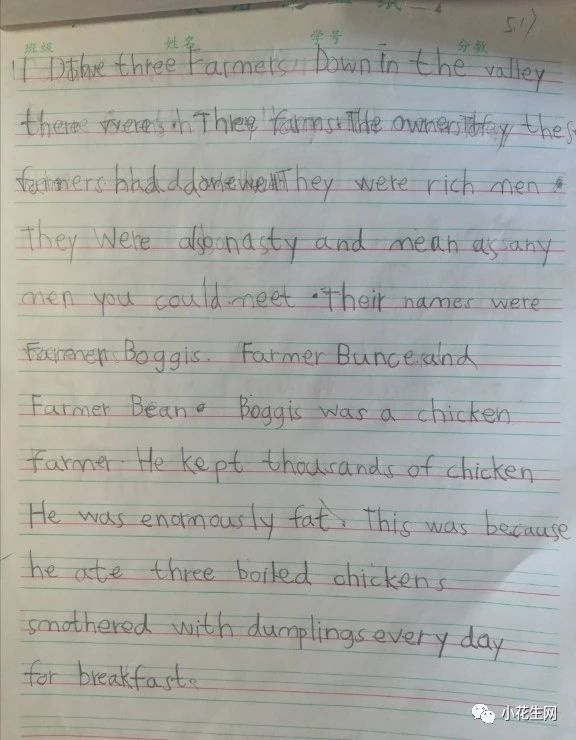 5.1)
班级 姓名 学号 分数
1 The three Farmers Down in the valley
there were three farms. The owners of these
farmers had done well They were rich men.
They were also nasty and mean as any
men you could meet. Their names were
Farmer Boggis. Farmer Bunce and
Farmer Bean. Boggis was a chicken
farmer. He kept thousands of chicken
He was enormously fat. This was because
he ate three boiled chickens
smothered with dumplings every day
for breakfast.
小花生网